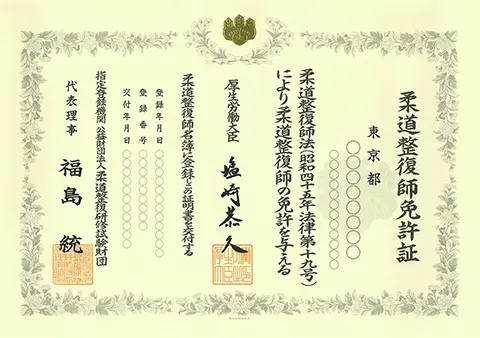 柔道整復師免許証
東京都
○○○○○○○
○○○○○○○○
柔道整復師法(昭和四十五年法律第十九号)
により柔道整復師の免許を与える
厚生労働大臣
塩崎恭久
柔道整復師名簿に登録しこの証明書を交付する
登録年月日 ○○○○○○○○
登録番号 ○○○○○○○○
交付年月日 ○○○○○○○○
指定登録機関 公益財団法人柔道整復研修試験財団
代表理事 福島統